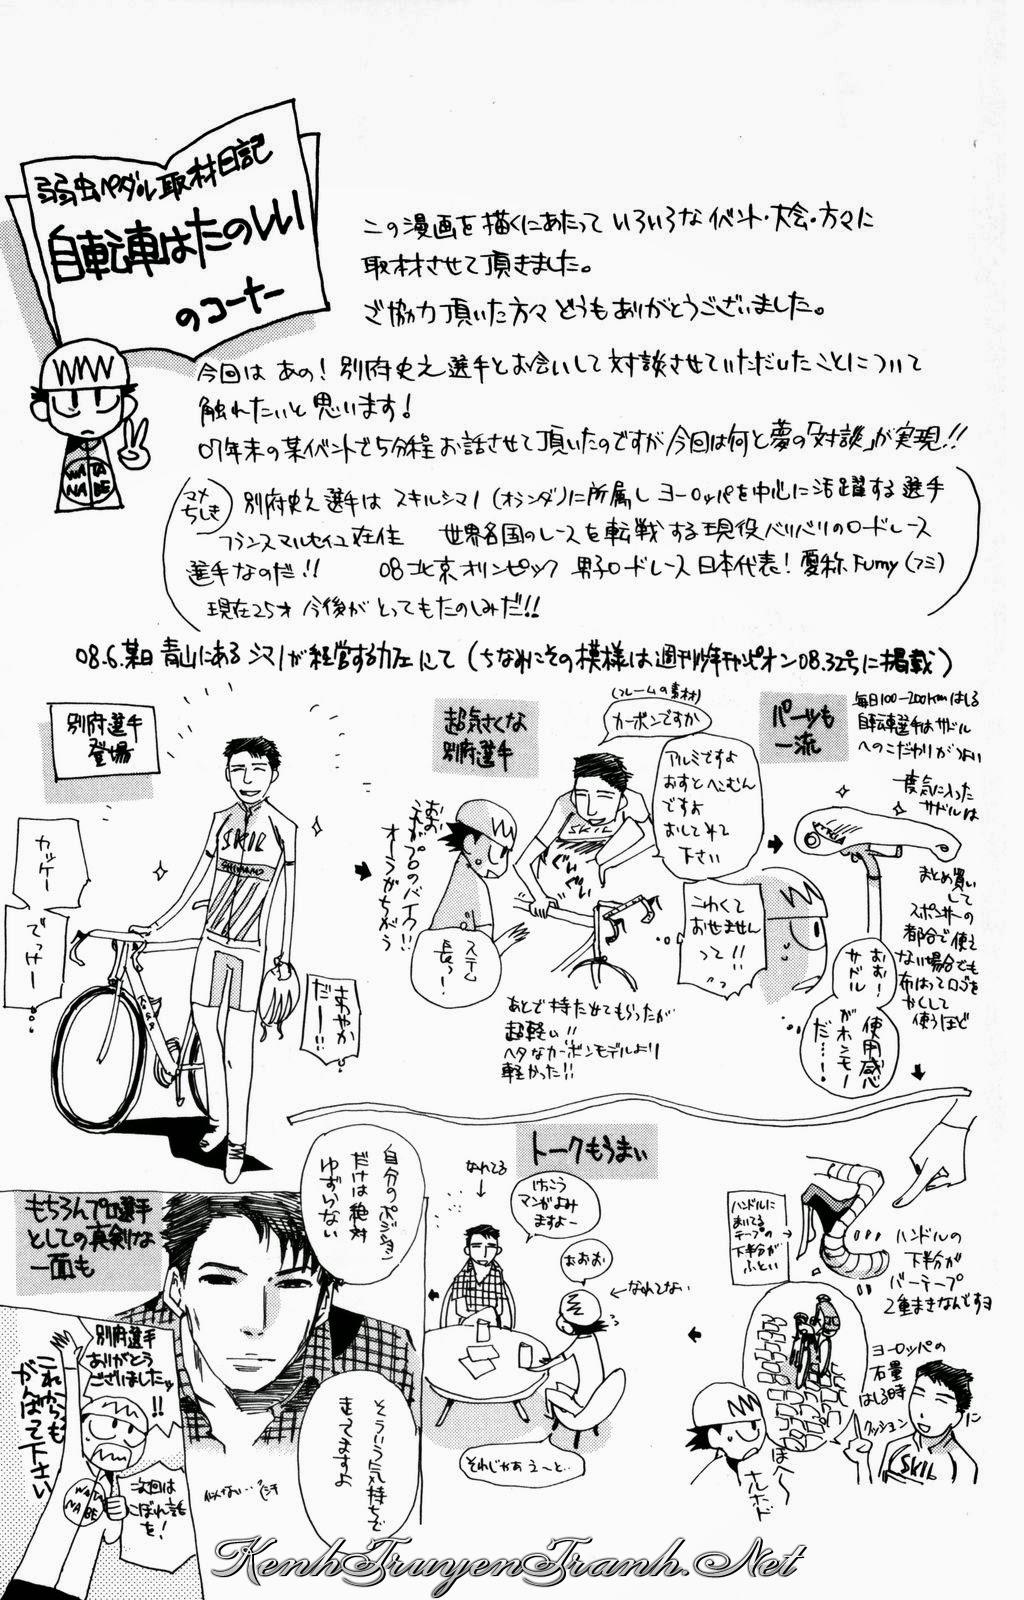 弱虫ペダル取材日記
自転車はたのしい
のコーナー
この漫画を描くにあたっていろいろなイベント・大会・方々に
取材させて頂きました。
ご協力頂いた方々どうもありがとうございました。
今回はあの！別府史之選手とお会いして対談させていただいたことについて
触れたいと思います！
07年末の某イベントで5分程お話させて頂いたのですが今回は何と夢の「対談」が実現!!
マメちしき
別府史之選手はスキルシマノ(オランダ)に所属しヨーロッパを中心に活躍する選手
フランスマルセイユ在住 世界各国のレースを転戦する現役バリバリのロードレース
選手なのだ!! 08北京オリンピック男子ロードレース日本代表！愛称Fumy(フミ)
現在25才今後がとってもたのしみだ!!
08.6.某日青山にあるシマノが経営するカフェにて(ちなみにその模様は週刊少年チャンピオン08.32号に掲載)
別府選手
登場
カッケー
でっけー
SKIL
SHIMANO
さわやか
だー!!
超気さくな
別府選手
(フレームの素材)
カーボンですか
アルミですよ
おすとへこむん
ですよ
おしてみて
下さい
おお
これがプロのバイク!!
オーラがちがう
SKIL
ステム
長っ！
こわくて
おせません
って!!
あとで持たせてもらったが
超軽い!!
ヘタなカーボンモデルより
軽かった!!
パーツも
一流
毎日100-200kmはしる
自転車選手はサドル
へのこだわりがつよい
一度気に入った
サドルは
まとめ買い
して
スポンサーの
都合で使え
ない場合でも
布はってロゴを
かくして
使うほど
おお！
サドル
がホンモー
使用感
だ…！
ハンドルに
まいてる
テープの
下半分が
ふとい
ハンドルの
下半分が
バーテープ
2重まきなんですヨ
ヨーロッパの
石畳
はしる時
クッション
に
SKIL
ほへ〜
ナルホド
トークもうまい
なれてる
けっこう
マンガよみ
ますよー
おおお
←なれてない
それじゃあえーと…
もちろんプロ選手
としての真剣な
一面も
自分のポジション
だけは絶対
ゆずらない
そういう気持ちで
走ってますよ
似てない…
別府選手
ありがとう
ございましたッ
!!
これからも
がんばって下さい
WATA
NABE
次回は
こぼれ話
を！
KenhTruyenTranh.Net